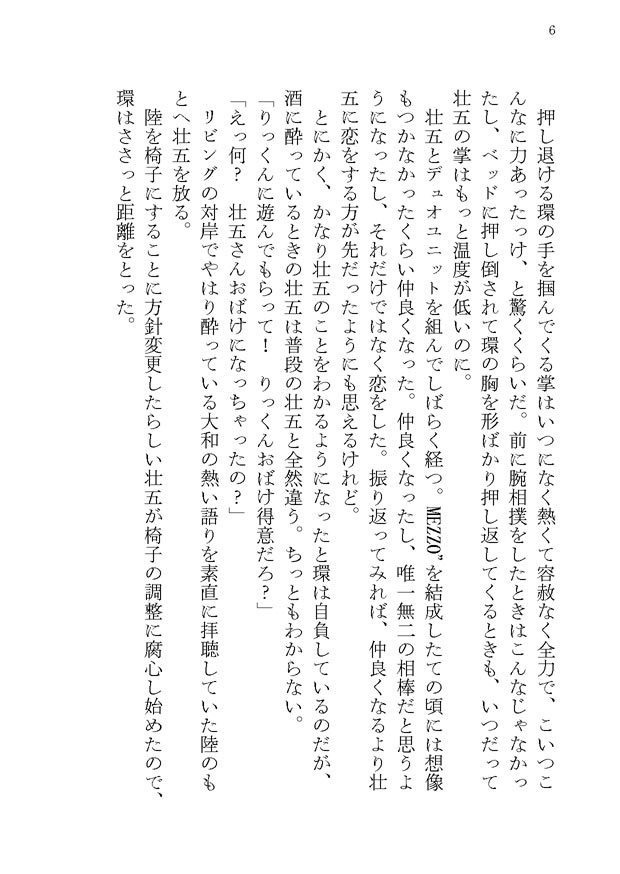 6
押し退ける環の手を掴んでくる掌はいつになく熱くて容赦なく全力で、こいつこ
んなに力あったっけ、と驚くくらいだ。前に腕相撲をしたときはこんなじゃなかっ
たし、ベッドに押し倒されて環の胸を形ばかり押し返してくるときも、いつだって
壮五の掌はもっと温度が低いのに。
壮五とデュオユニットを組んでしばらく経つ。MEZZO”を結成したての頃には想像
もつかなかったくらい仲良くなった。仲良くなったし、唯一無二の相棒だと思うよ
うになったし、それだけではなく恋をした。振り返ってみれば、仲良くなるより壮
五に恋をする方が先だったようにも思えるけれど。
とにかく、かなり壮五のことをわかるようになったと環は自負しているのだが、
酒に酔っているときの壮五は普段の壮五と全然違う。ちっともわからない。
「りっくんに遊んでもらって！　りっくんおばけ得意だろ？」
「えっ何？　壮五さんおばけになっちゃったの？」
リビングの対岸でやはり酔っている大和の熱い語りを素直に拝聴していた陸のも
とへ壮五を放る。
陸を椅子にすることに方針変更したらしい壮五が椅子の調整に腐心し始めたので、
環はささっと距離をとった。